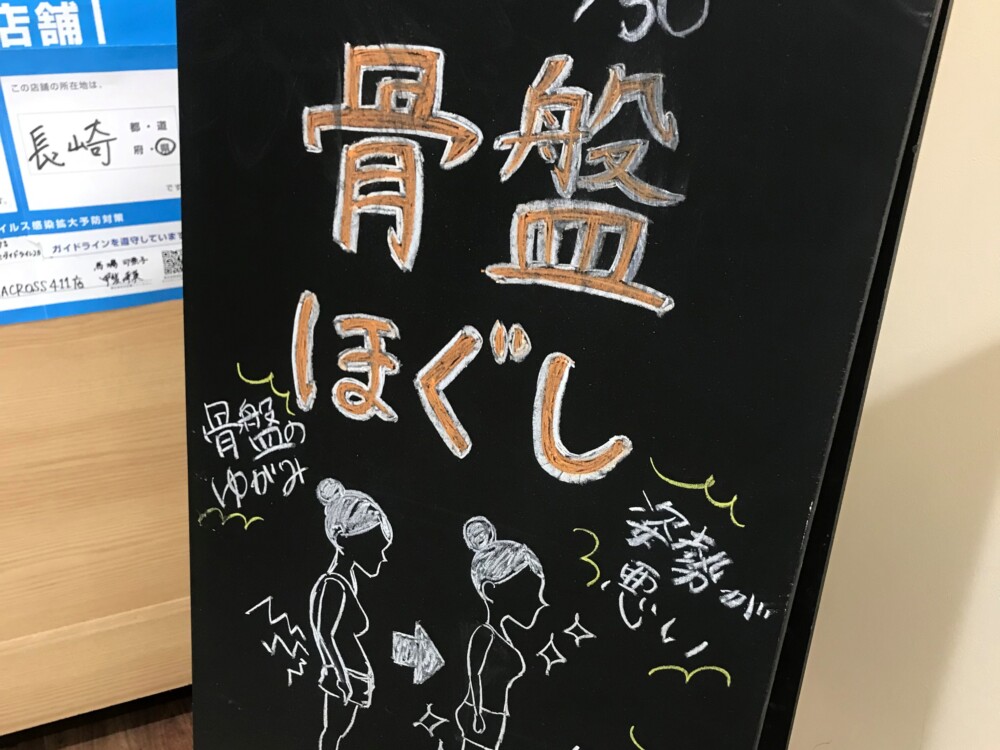 店舗
この店舗の所在地は、
長崎
都・道
府・県
です
イルス感染拡大予防対策
ガイドラインを遵守しています
ACROSS411店
骨盤
ほぐし
骨盤の
ゆがみ
姿勢が
悪い